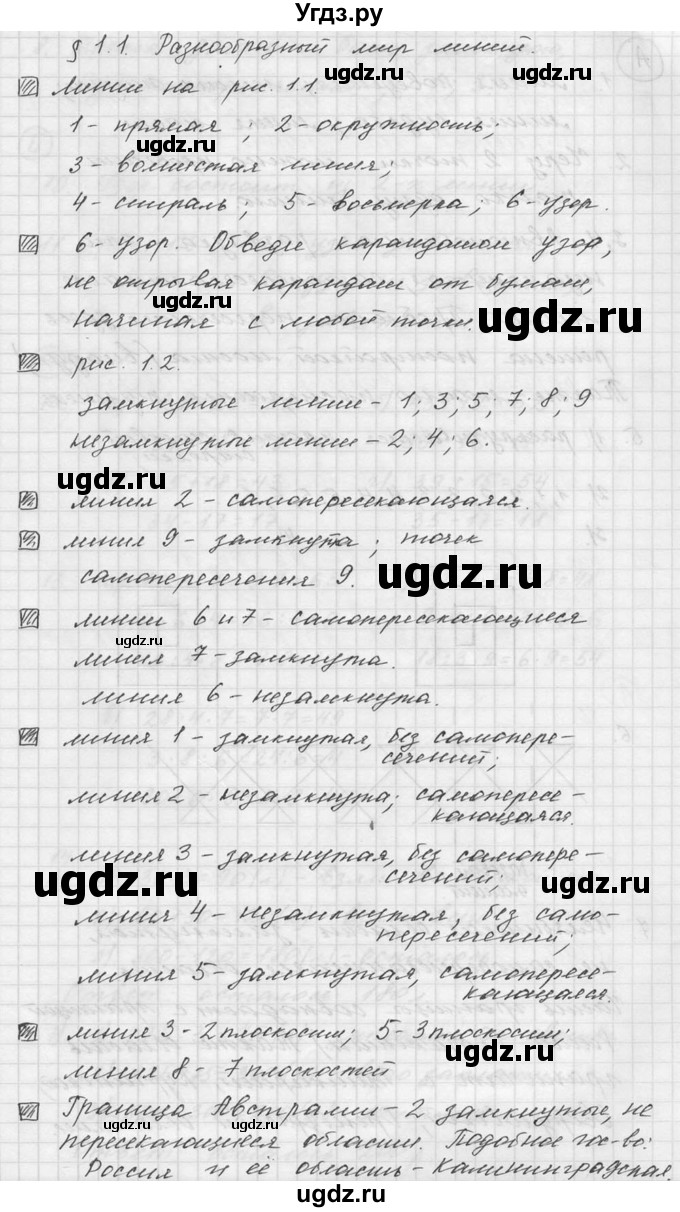 Угдз.ру
§ 1.1. Разнообразный мир линий.
ugdz.ru ugdz.ru
Линии на рис. 1.1.
1 - прямая ; 2 - окружность;
ugdz.ru
3 - волнистая линия;
ugdz.ru
4 - спираль ; 5 - восьмерка ; 6 - узор.
6 - узор. Обведи карандашом узор,
не отрывая карандаш от бумаги,
ugdz.ru
начиная с любой точки.
ugdz.ru
рис. 1.2.
замкнутые линии - 1 ; 3 ; 5 ; 7 ; 8 ; 9
незамкнутые линии - 2 ; 4 ; 6.
ugdz.ru
линия 2 - самопересекающаяся.
линия 9 - замкнута ; точек
самопересечения 9.
ugdz.ru
линии 6 и 7 - самопересекающиеся
ugdz.ru
линия 7 - замкнута.
линия 6 - незамкнута.
линия 1 - замкнутая, без самопере-
сечений;
линия 2 - незамкнута; самопересе-
кающаяся.
линия 3 - замкнутая, без самопере-
сечений;
ugdz.ru ugdz.ru
линия 4 - незамкнутая, без само-
пересечений;
линия 5 - замкнутая, самопересе-
кающаяся.
линия 3 - 2 плоскосим; 5 - 3 плоскосим;
ugdz.ru
линия 8 - 7 плоскостей
Граница Австралии - 2 замкнутые, не
ugdz.ru ugdz.ru
пересекающиеся области. Подобное гос-во:
Россия и её область - Калининградская.
ugdz.ru